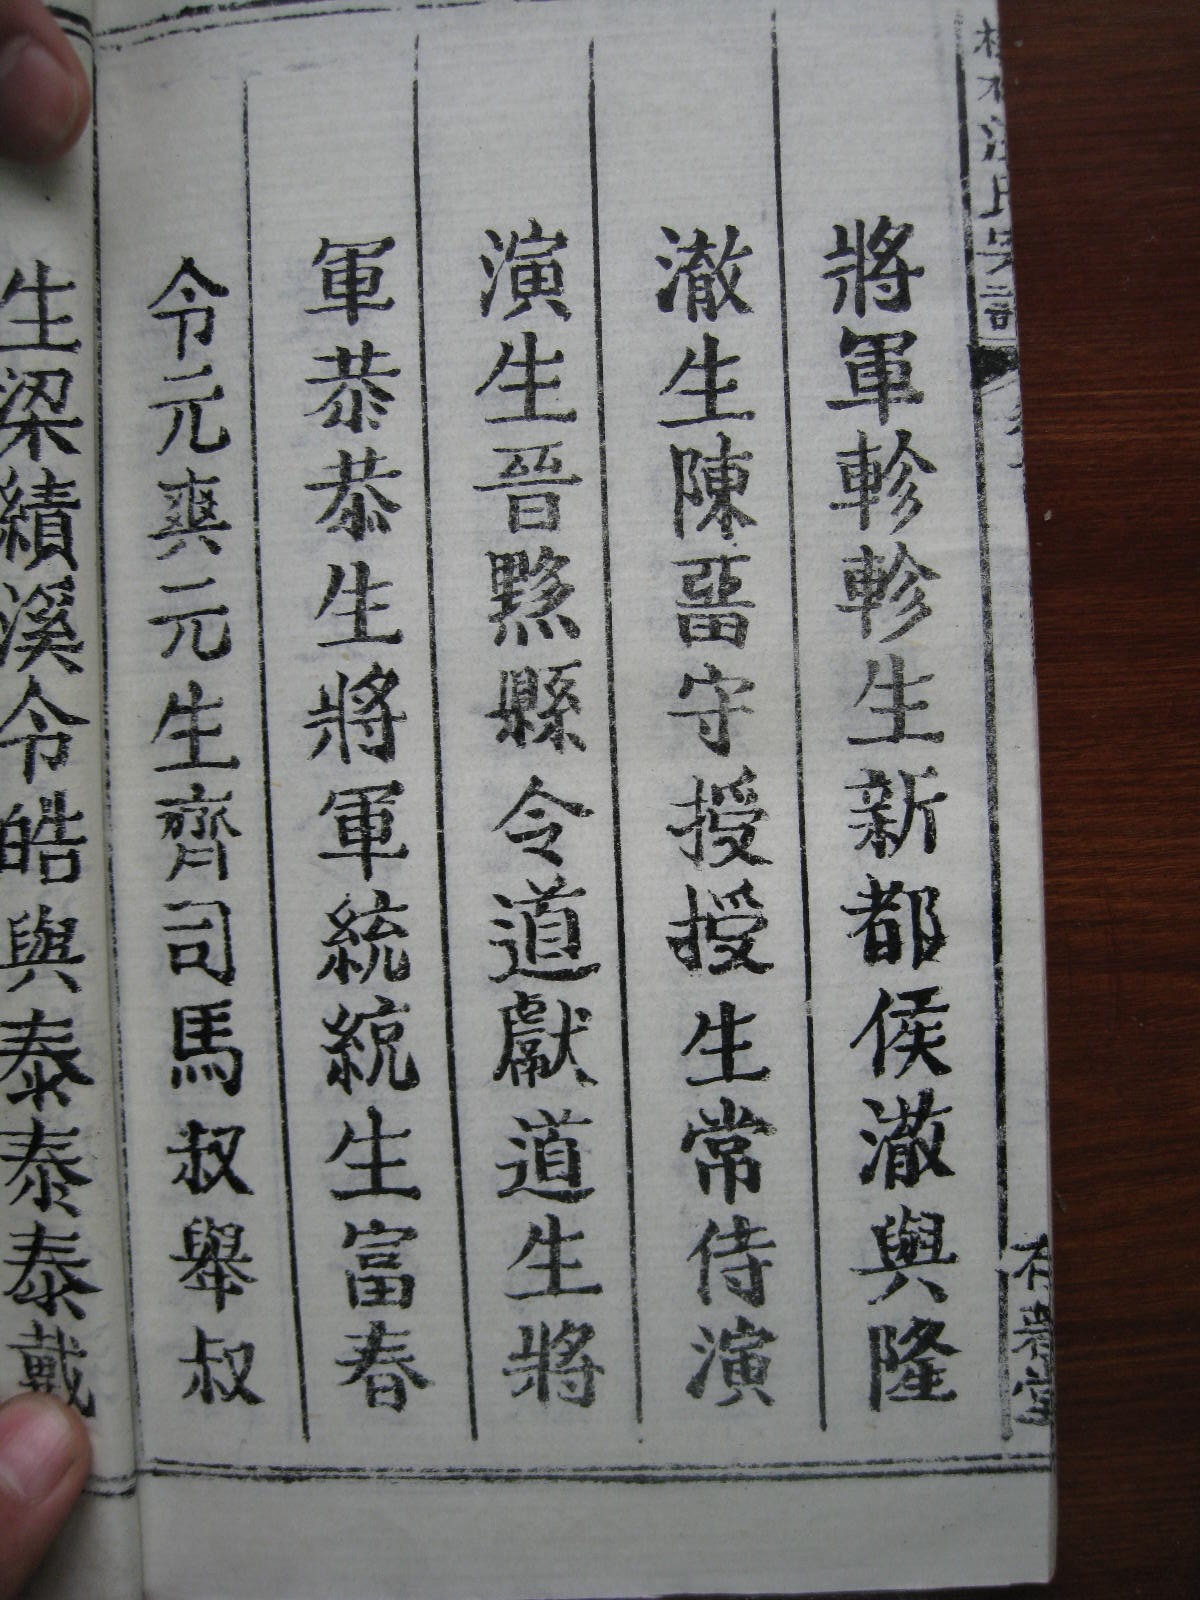 將軍軫軫生新都侯澈與隆
澈生陳畱守授授生常侍演
演生晉黟縣令道獻道生將
軍恭恭生將軍統統生富春
令元爽元生齊司馬叔舉叔
生梁績溪令皓與泰泰泰戴